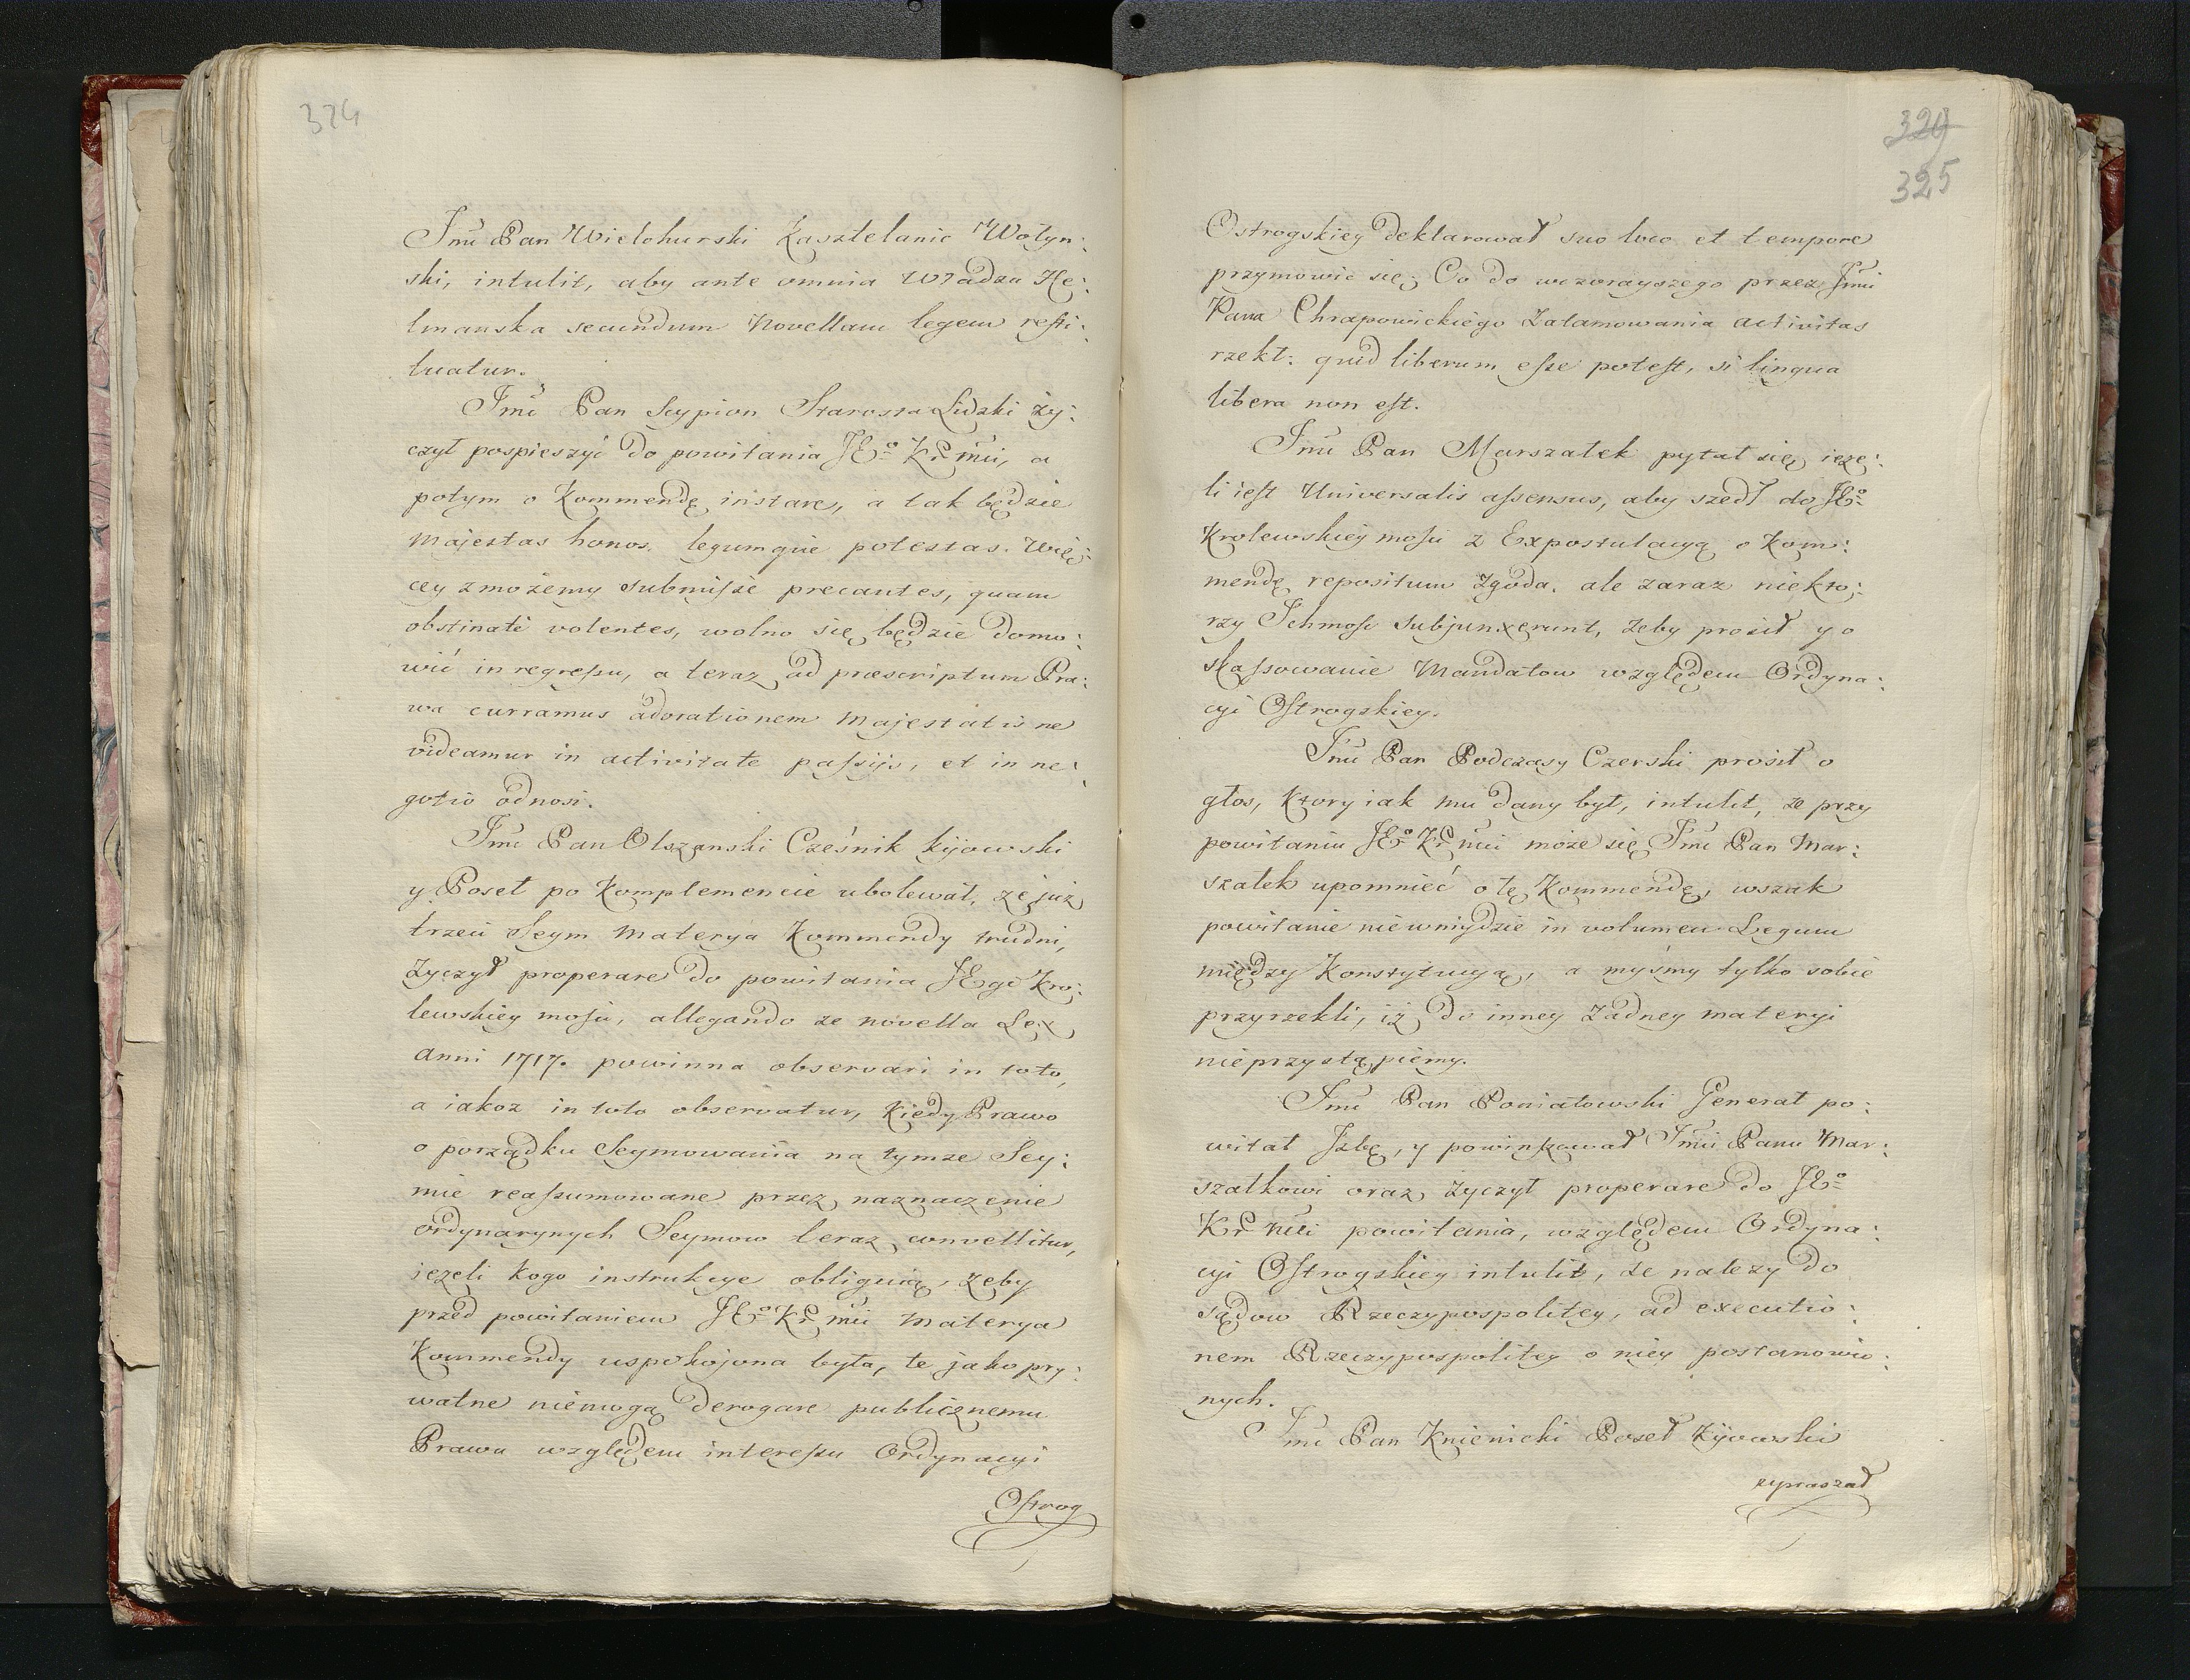 324
Jmć Pan Wielohurski Kasztelanic Wołyn:
ski, intulit, aby ante omnia Władza He:
tmanska secundum Novellam legem resti:
tuatur.
Jmć Pan Scypion Starosta Lidzki ży:
czył pospieszyć do powitania JEº Kr mci, a
potym o Kommendę instare, a tak będzie
Majestas honos. legumque potestas. Wię:
cey zmożemy submisse precantes, quam
obstinate volentes, wolno się będzie domo:
wić in regressu, a teraz ad præscriptum Pra:
wa curramus adorationem Majestatis ne
videamur in activitate passijs, et in ne:
gotio odnosi.
Jmć Pan Olszanski Cześnik kijowski
y Poseł po Komplemencie ubolewał, że już
trzeci Seym Materya Kommendy trudni,
Życzył properare do powitania JEgo Kro:
lewskiey mości, allegando ze novella Lex
anni 1717. powinna observari in toto,
a iakoz in toto observatur, Kiedy Prawo
o porządku Seymowania na tymze Sey:
mie reassumowane przez naznaczenie
ordynarynych Seymow teraz convellitur,
jeżeli kogo instrukcye obliguią, żeby
przed powitaniem JEº Kr mci Materya
Kommendy uspokojona była, te jako pry:
watne niemogą derogare publicznemu
Prawu względem interessu Ordynacyi
Ostrog
329
325
Ostrogskiey deklarował suo loco et tempore
przymowić się; Co do wczorayszego przez Jmci
Pana Chrapowickiego Zatamowania activitas
rzekł: quid liberum esse potest, si lingua
libera non est.
Jmć Pan Marszałek pytał się, ieże:
li iest Universalis assensus, aby szedł do JEº
Krolewskiey mości z Expostulacyą o Kom:
mendę, repositum Zgoda. ale zaraz niekto:
rzy Ichmość subjunxerunt, Zeby prosił y o
skassowanie Mandatow względem Ordyna:
cyi Ostrogskiey.
Jmć Pan Podczasy Czerski prosił o
głos, ktory iak mu dany był, intulit, ze przy
powitaniu JEº Kr mci może się Jmć Pan Mar:
szałek upomnieć o tę Kommendę, wszak
powitanie niewniydzie in volumen Legum
między Konstytucyą, a myśmy tylko sobie
przyrzekli, iż do inney Żadney materyi
nieprzystąpiemy.
Jmć Pan Poniatowski Generał po:
witał Jzbę, y powinszował Jmci Panu Mar:
szałkowi oraz życzył properare do JEº
Kr mci powitania, względem Ordyna:
cyi Ostrogskiey intulit, ze nalezy do
sądow Rzeczypospolitey, ad executio:
nem Rzeczypospolitey o niey postanowio:
nych.
Jmć Pan Knienicki Poseł Kijowski
upraszał